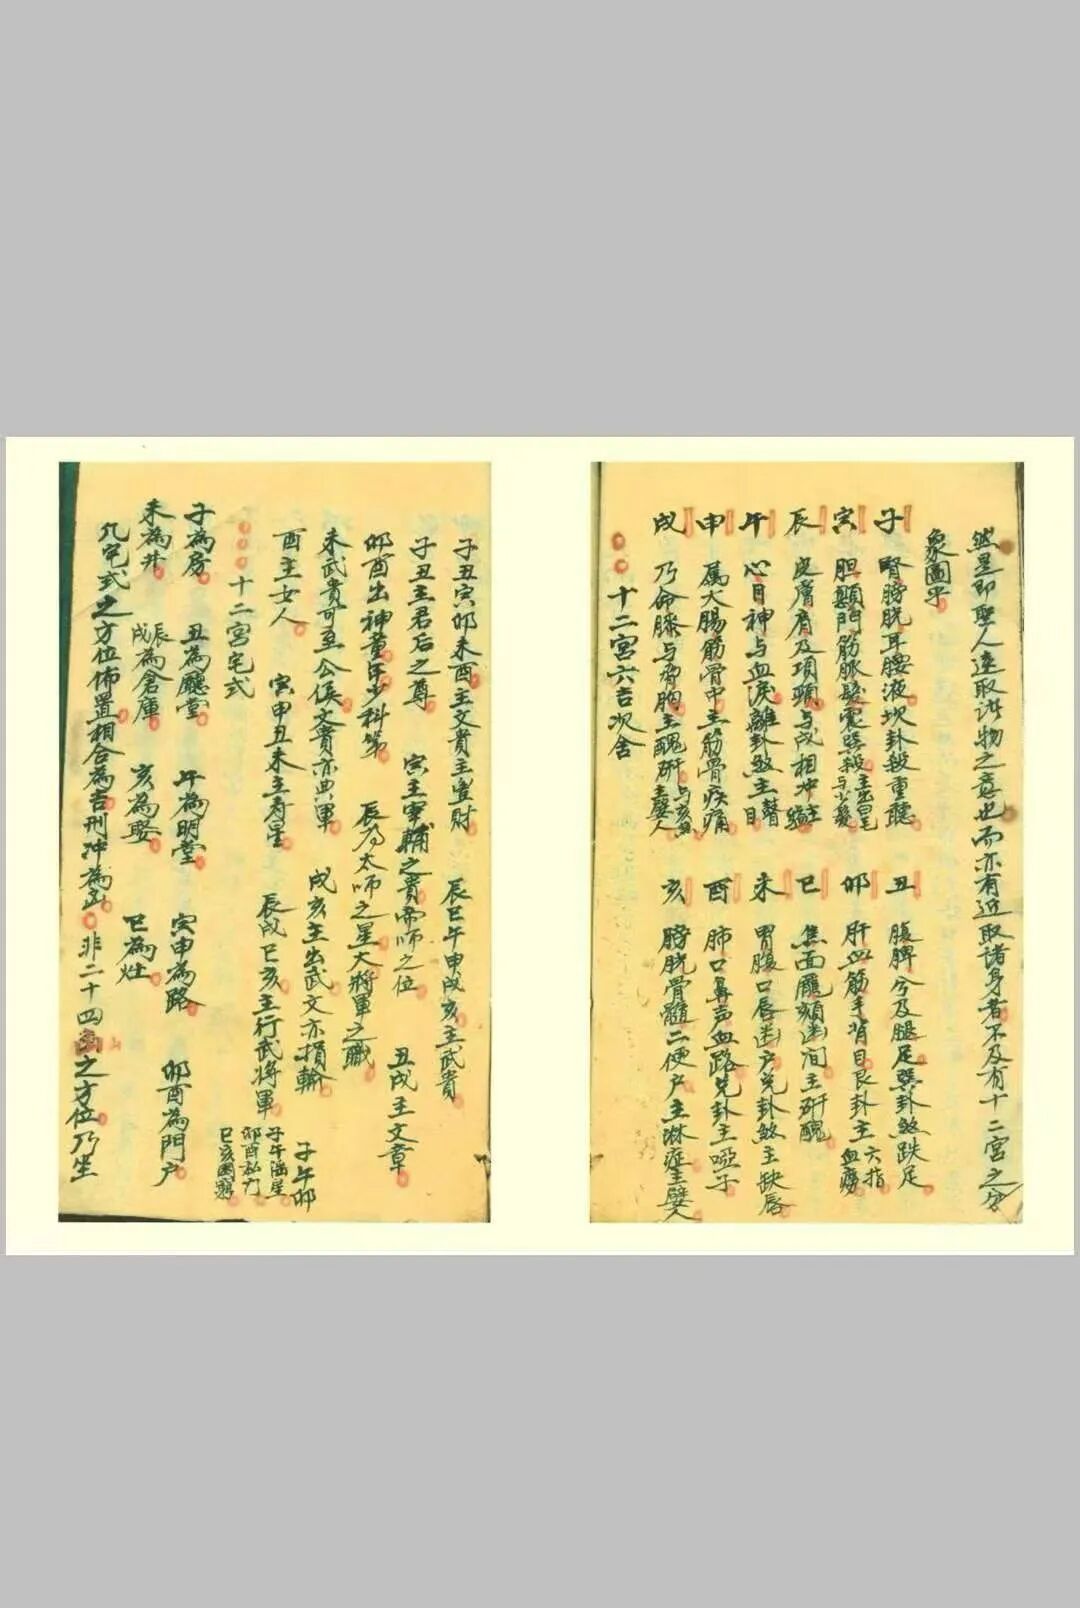 然是即聖人遠取諸物之意也而亦有近取諸身者不及有十二宮之分
象圖乎
子 腎膀胱耳腰液坎卦殺重聽 丑 腹脾兮及腿足巽卦煞跌足
寅 胆顛門筋脈髮 卯 肝血筋手背目艮卦主六指血癆
辰 皮膚肩及項頸与戌相冲主 巳 焦面齒间主矸醜
午 心目神与血液離卦煞主瞽目 未 胃腹口唇齿户兑卦煞主缺唇
申 属大腸筋骨中主筋骨疾痛 酉 肺口鼻声血路兑卦主啞子
戌 乃命膝与胸主醜矸 亥 膀胱骨髓二便户主淋症主嬖人
十二宮六吉次舍
子丑寅卯未酉主文貴主豊財 辰巳午申戌亥主武貴
子丑主君后之尊 寅主宰輔之貴帝師之位 丑戌主文章
卯酉出神童年少科第 辰为太師之星大將軍之職
未武貴可至公侯文貴亦典軍 戌亥主出武文亦損輪 子午卯
酉主女人 寅申丑未主寿星 辰戌巳亥主行武將軍 子午滛星 卯酉私 巳亥
十二宮宅式
子為房 丑為廳堂 午為明堂 寅申為路 卯酉為門户
未為井 辰戌為倉庫 亥為 巳為灶
凡宅式之方位佈置相合為吉刑冲為凶 非二十四山之方位乃坐